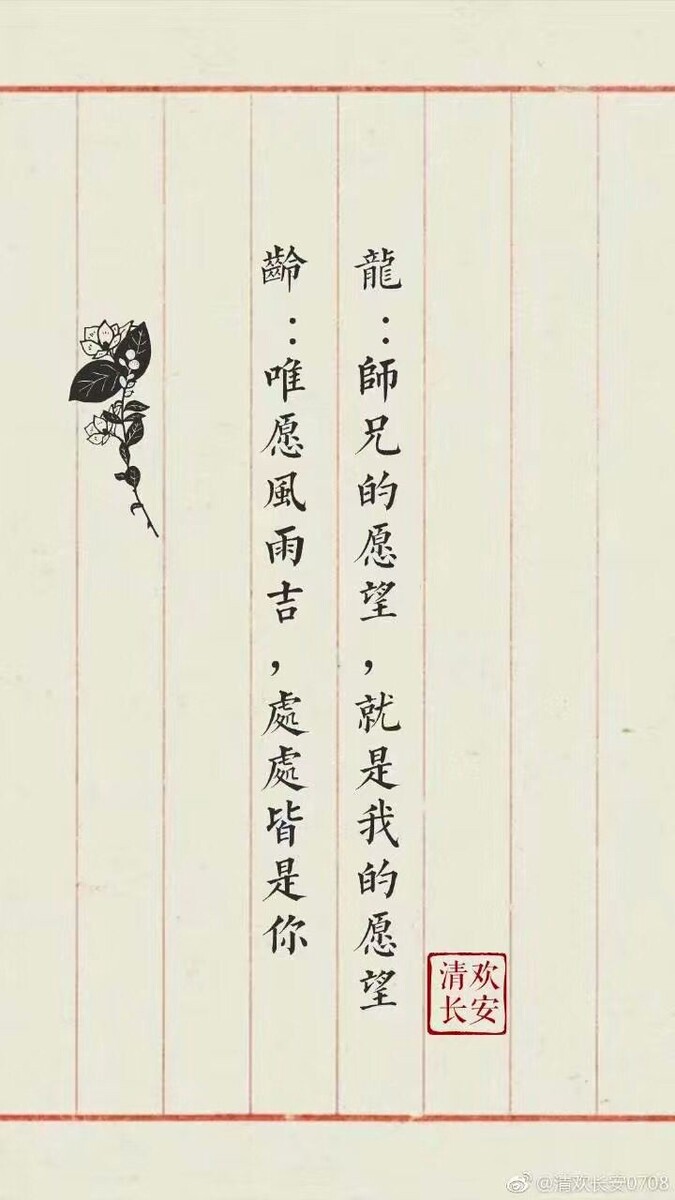 龍：師兄的愿望，就是我的愿望
齡：唯愿風雨吉，處處皆是你
清欢
长安
@清欢长安0708